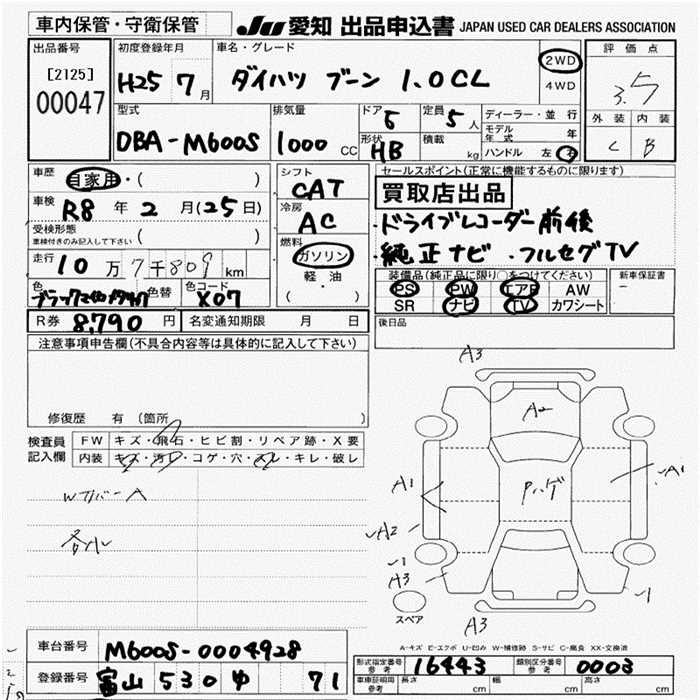 車内保管・守衛保管 JU 愛知 出品申込書 JAPAN USED CAR DEALERS ASSOCIATION
出品番号 初度登録年月 車名・グレード 評価点
[2125] H25 7月 ダイハツ ブーン 1.0CL 2WD 3.5
00047 4WD
型式 排気量 ドア 5 定員 5人 ディーラー・並行 外装 内装
DBA-M600S 1000 CC 形状 HB 積載 kg モデル年式 年 C B
ハンドル 左 右
車歴 自家用・( ) シフト セールスポイント(正常に機能するものに限ります)
車検 R8年 2月(25日) CAT 買取店出品
受検形態 冷房 ・ドライブレコーダー前後
車検付きのみ記入して下さい ( ) AC ・純正ナビ ・フルセグTV
走行 10万7千809km 燃料 ガソリン
軽・油
( )
装備品(純正品に限り○をつけてください) 新車保証書
色 色替 色コード X07 PS PW エアB AW −
SR ナビ TV カワシート
R券 8,790円 名変通知期限 月 日 後日品
注意事項申告欄(不具合内容等は具体的に記入して下さい)
修復歴 有(箇所
検査員記入欄 FW キズ・飛石・ヒビ割・リペア跡・X要
内装 キズ・汚レ・コゲ・穴・スレ・キレ・破レ
WカバーA
各小
A3
A2
A1 Pハゲ A1
A2
A3 1
1
スペア A3
A-キズ E-エクボ U-凹み W-補修跡 S-サビ C-腐食 XX-交換済
車台番号 M600S-0004928
登録番号 富山 530 ゆ 71
形式指定番号 参考 16443 類別区分番号 参考 0003
車庫証明用 参考 長さ cm 幅 cm 高さ cm